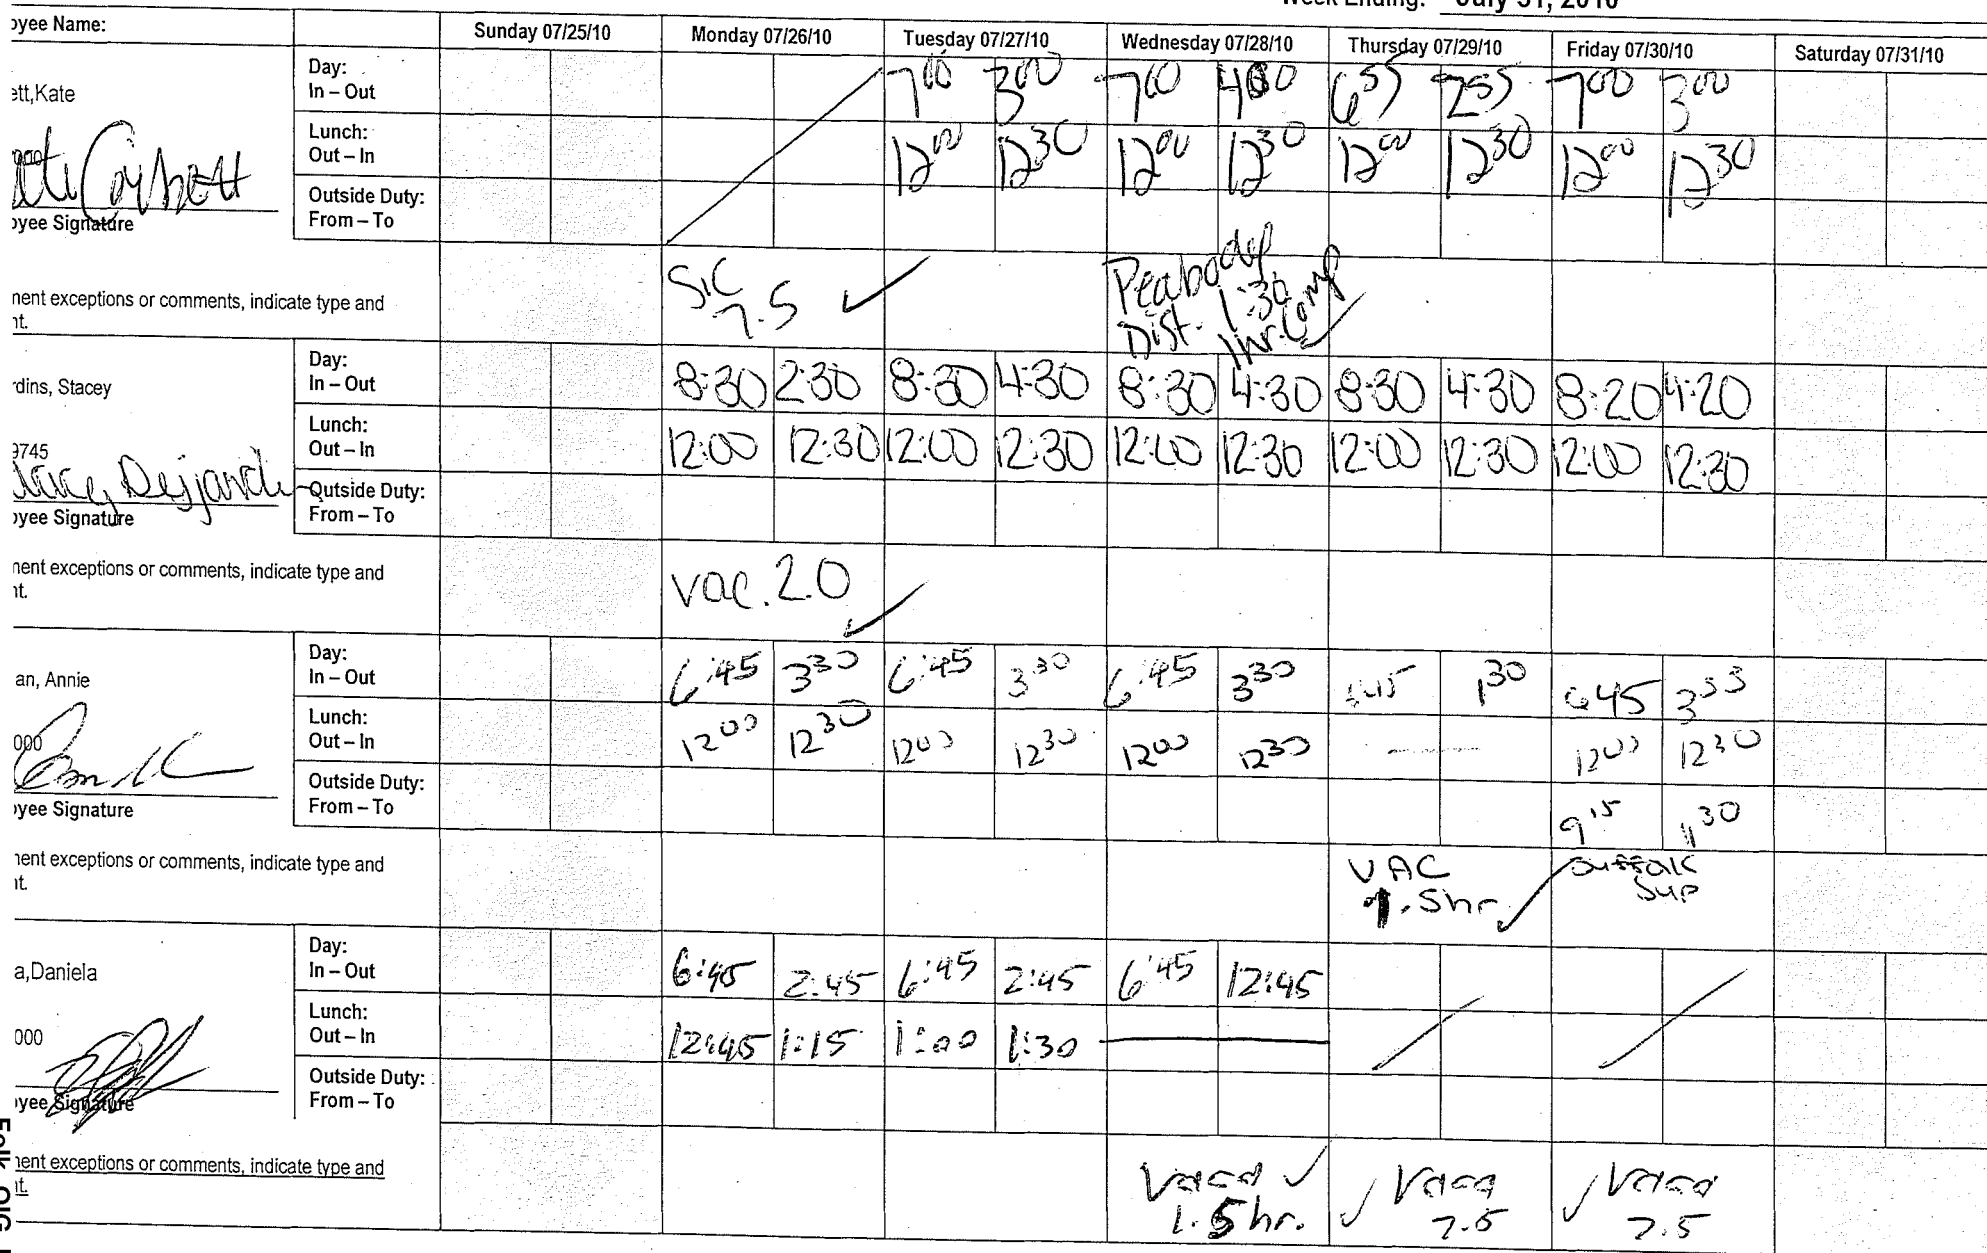 Week Ending: July 31, 2010
oyee Name: Sunday 07/25/10 Monday 07/26/10 Tuesday 07/27/10 Wednesday 07/28/10 Thursday 07/29/10 Friday 07/30/10 Saturday 07/31/10
ett,Kate
Day:
In – Out 7 00 3 00 7 00 4 00 6 55 2 55 7 00 3 00
Lunch:
Out – In 12 00 12 30 12 00 12 30 12 00 12 30 12 00 12 30
Corbett
Outside Duty:
From – To
oyee Signature
nent exceptions or comments, indicate type and
nt.
SIC
7.5 ✓
Peabody
Dist. 1:30
1hr. Comp
rdins, Stacey
Day:
In – Out 8:30 2:30 8:30 4:30 8:30 4:30 8:30 4:30 8:20 4:20
9745
Lunch:
Out – In 12:00 12:30 12:00 12:30 12:00 12:30 12:00 12:30 12:00 12:30
Stacey Desjardins
Outside Duty:
From – To
oyee Signature
nent exceptions or comments, indicate type and
nt.
vac. 2.0 ✓
an, Annie
Day:
In – Out 6:45 3 30 6:45 3 30 6:45 3 30 1 30 645 3 33
000
Lunch:
Out – In 12 00 12 30 12 00 12 30 12 00 12 30 — 12 00 12 30
Outside Duty:
From – To 9 15 1 30
oyee Signature
nent exceptions or comments, indicate type and
nt.
VAC
1.5hr ✓
Suffolk
Sup
a,Daniela
Day:
In – Out 6:45 2:45 6:45 2:45 6:45 12:45
000
Lunch:
Out – In 12:45 1:15 1:00 1:30 —
Outside Duty:
From – To
oyee Signature
nent exceptions or comments, indicate type and
nt.
Vaca ✓
1.5 hr.
✓ Vaca
7.5
✓ Vaca
7.5